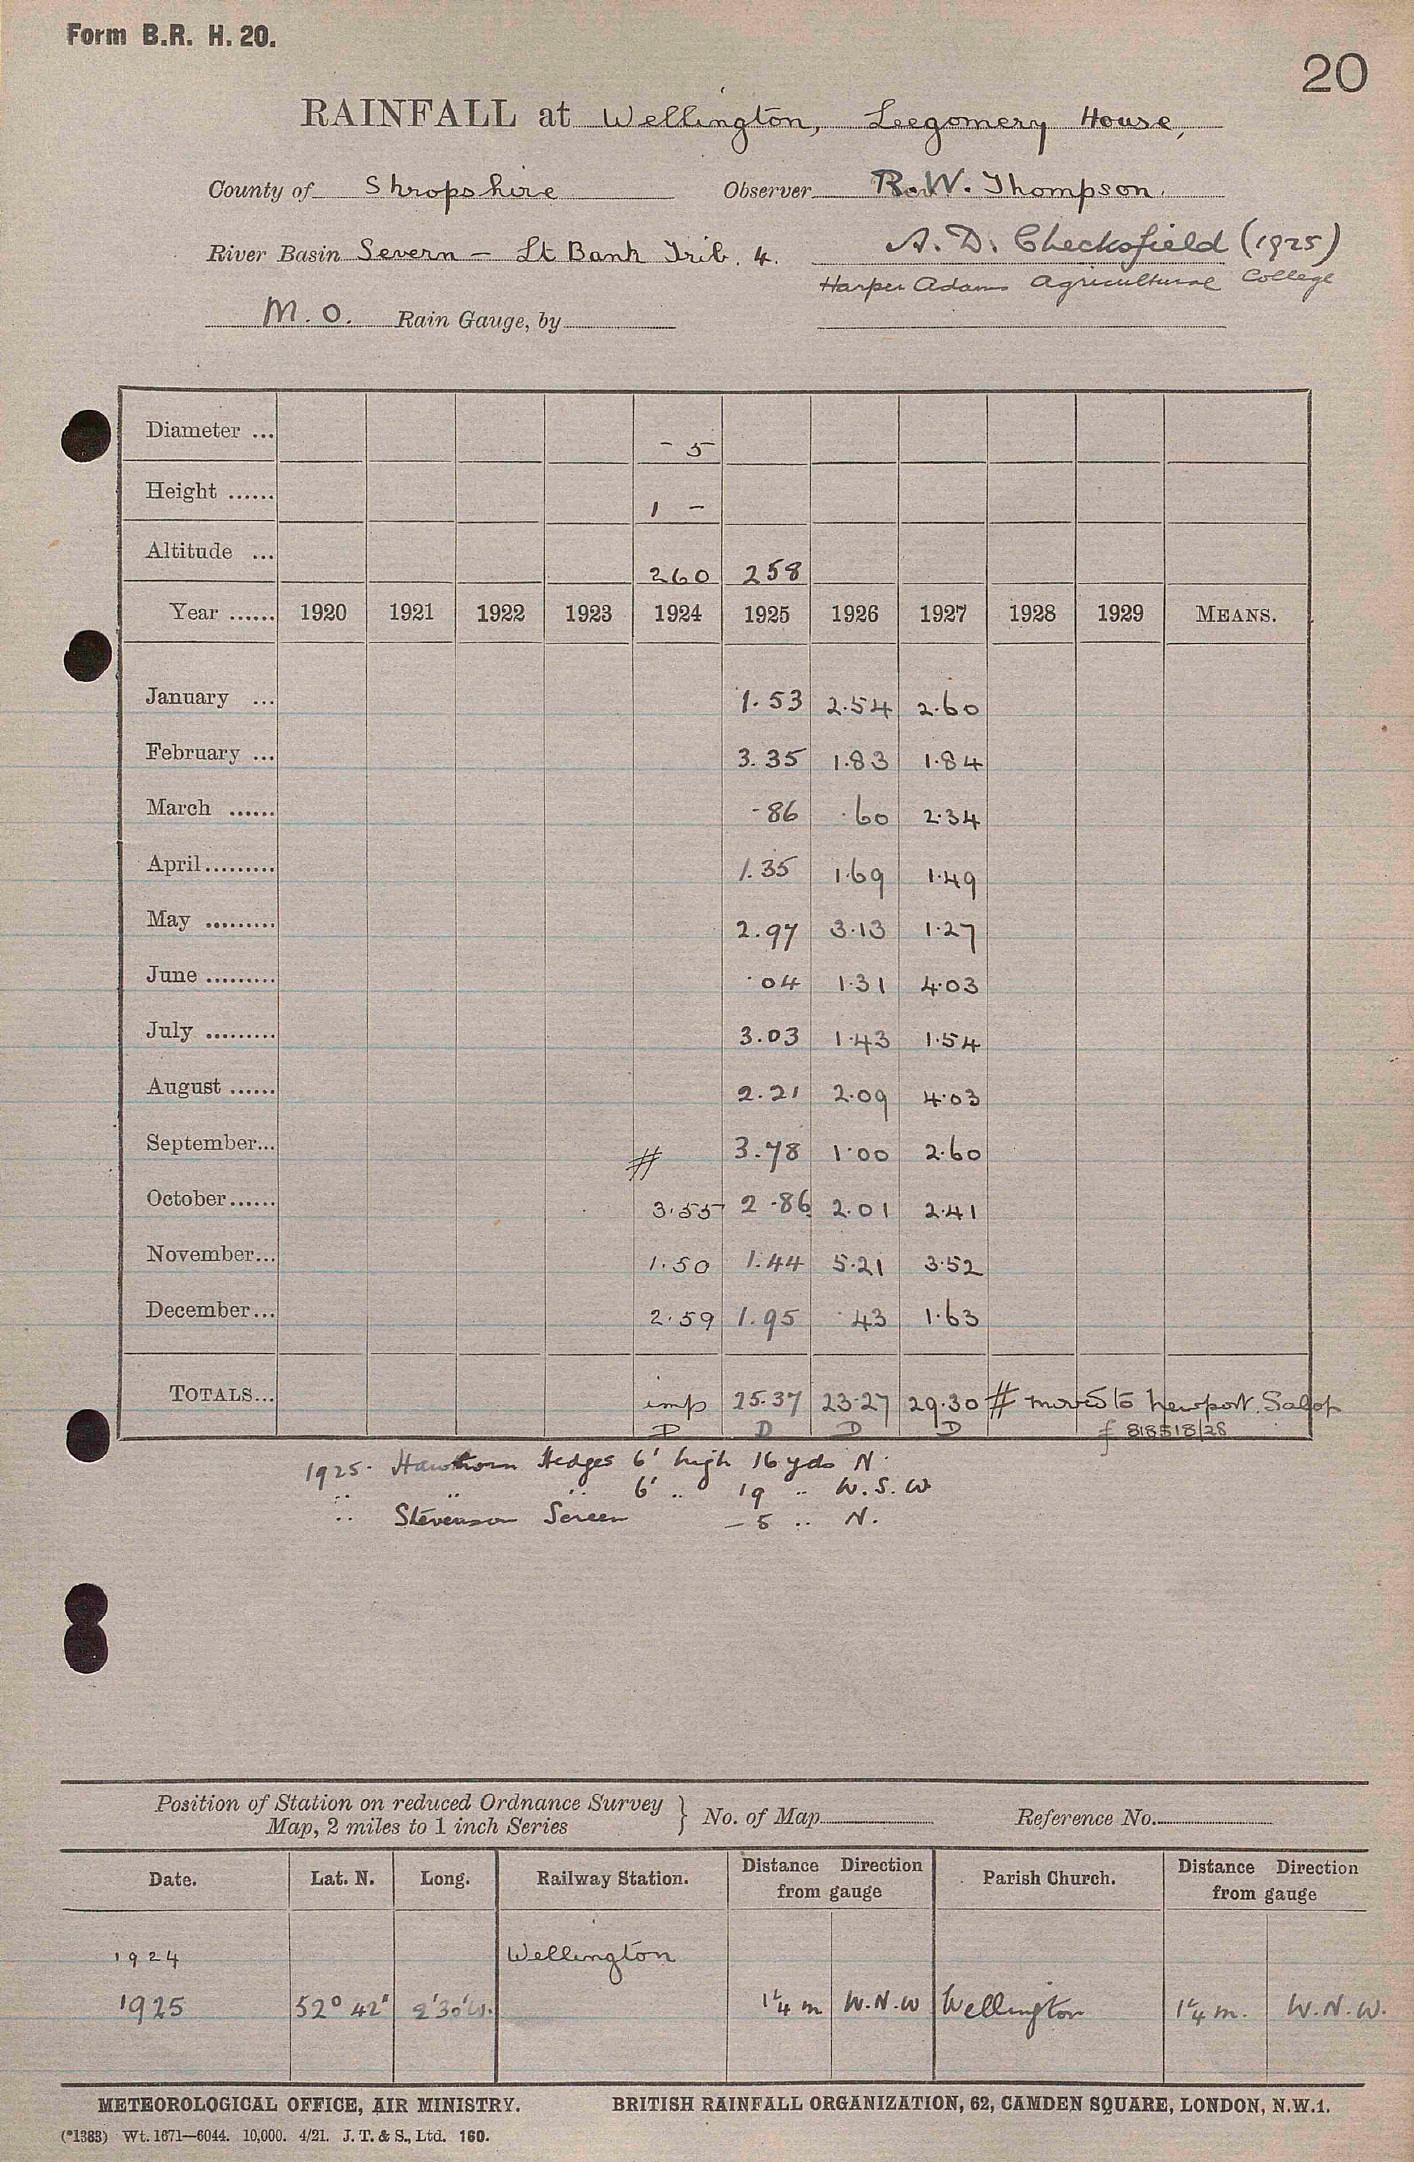 Form B.R. H. 20.
20
RAINFALL at Wellington, Leegomery House,
County of Shropshire Observer R.W. Thompson.
River Basin Severn – Lt Bank Trib. 4. A. D. Checksfield (1925)
Harper Adams Agricultural College
M.O. Rain Gauge, by
Diameter ... – 5
Height ...... 1 –
Altitude ... 260 258
Year ...... 1920 1921 1922 1923 1924 1925 1926 1927 1928 1929 MEANS.
January ... 1.53 2.54 2.60
February ... 3.35 1.83 1.84
March ...... .86 .60 2.34
April......... 1.35 1.69 1.49
May ......... 2.97 3.13 1.27
June ......... .04 1.31 4.03
July ......... 3.03 1.43 1.54
August ...... 2.21 2.09 4.03
September... # 3.78 1.00 2.60
October...... 3.55 2.86 2.01 2.41
November... 1.50 1.44 5.21 3.52
December... 2.59 1.95 .43 1.63
TOTALS... imp 25.37 23.27 29.30 # moved to Newport. Salop
D D D D 818518/28
1925. Hawthorn Hedges 6' high 16 yds N.
.. .. .. 6' .. 19 .. W.S.W
.. Stevenson Screen – 5 .. N.
Position of Station on reduced Ordnance Survey
Map, 2 miles to 1 inch Series } No. of Map Reference No.
Date. Lat. N. Long. Railway Station. Distance Direction from gauge Parish Church. Distance Direction from gauge
1924 Wellington
1925 52° 42' 2°30'W. 1¼ m W.N.W Wellington 1¼ m. W.N.W.
METEOROLOGICAL OFFICE, AIR MINISTRY. BRITISH RAINFALL ORGANIZATION, 62, CAMDEN SQUARE, LONDON, N.W.1.
(*1383) Wt. 1671—6044. 10,000. 4/21. J. T. & S., Ltd. 160.